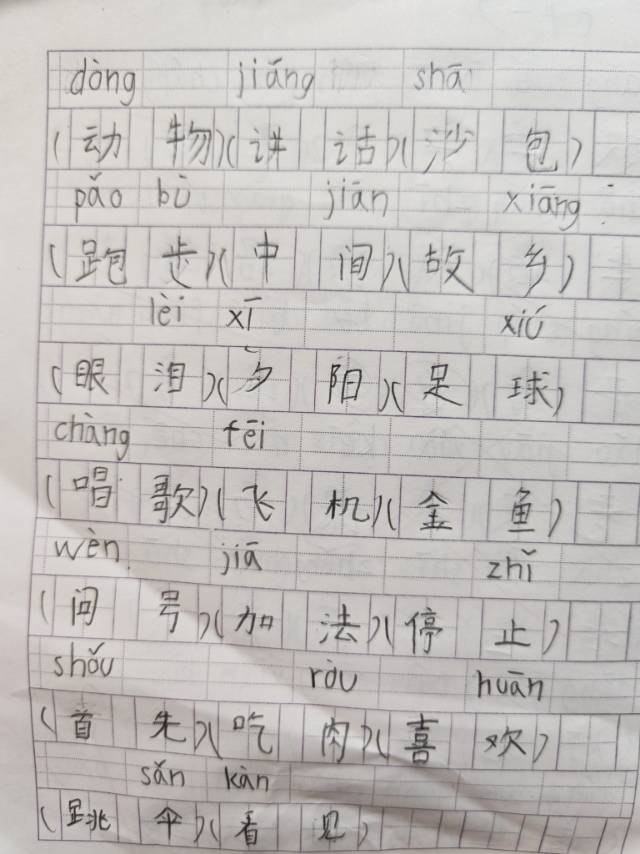 dòng jiǎng shā
(动物)(讲话)(沙包)
pǎo bù jiān xiāng
(跑步)(中间)(故乡)
lèi xī xiú
(眼泪)(夕阳)(足球)
chàng fēi
(唱歌)(飞机)(金鱼)
wèn jiā zhǐ
(问号)(加法)(停止)
shǒu ròu huān
(首先)(吃肉)(喜欢)
sǎn kàn
(跳伞)(看见)